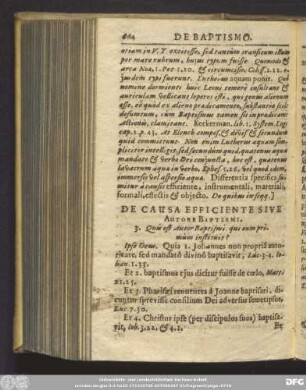 464 DE BAPTISMO.
etiam in V. T. exstitisse, sed tantum transitum illum
per mare rubrum, hujus typum fuisse. Quemodo &
arca Noæ, 1. Pet. 3.20. & circumcisio, Coloss. 2.11. e-
jusdem typi fuerunt. Lutherus aquam ponit. Qui
nomine dormienti huic Leoni temerè insultare &
auriculam vellicare leporis est, qui genus alienum
esse, eò quòd ex alieno prædicamento, substantiæ scil.
desumtum, cum Baptismus tamen sit in prædicam.
actionis, clamitant. Keckerman. lib. 1. System. Log.
cap. 2. p. 13. At Elench. compos. & divis. & secundum
quid committunt. Non enim Lutherus aquam sim-
pliciter intellexit, sed secundum quid, quatenus aqua
mandato & verbo Dei conjuncta, hoc est, quatenus
lavacrum aqua in verbo, Ephes. 5.26. vel quod idem,
immersio vel aspersio aqua. Differentia specifica su-
mitur à causis efficiente, instrumentali, materiali,
formali, effectis & objecto. De quibus in seqq.]
DE CAUSA EFFICIENTE SIVE
AUTORE BAPTISMI.
3. Quis est Autor Baptismi qui eum pri-
mùm instituit?
Ipse Deus. Quia 1. Johannes non propriâ auto-
ritate, sed mandato divinô baptizavit, Luc. 3.4. Jo-
han. 1.33.
Et 2. baptismus ejus dicitur fuisse de cœlo, Matt.
21.25.
Et 3. Pharisæi renuentes â Joanne baptizari, di-
cuntur sprevisse consilium Dei adversus semetipsos,
Luc. 7.30.
Et 4. Christus ipse (per discipulos suos) baptiza-
vit, Joh. 3.22. & 4.1.
Et